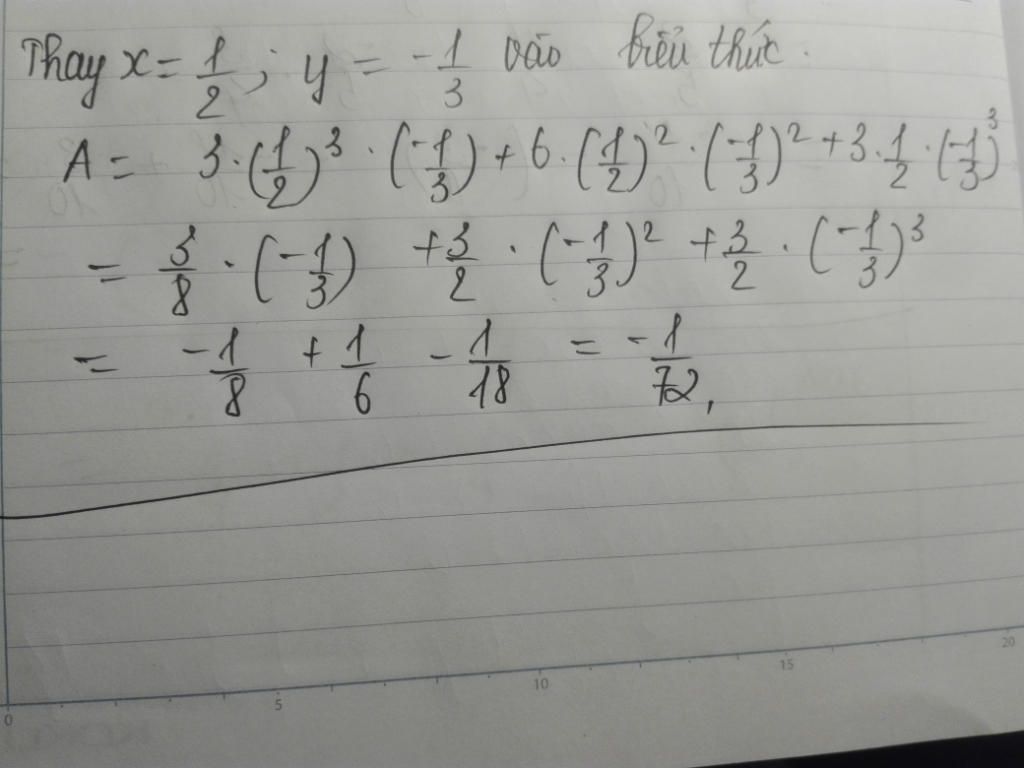 Thay x = 1/2 ; y = -1/3 vào biểu thức.
A = 3·(1/2)³ · (-1/3) + 6·(1/2)² · (-1/3)² + 3·1/2 · (-1/3)³
= 3/8 · (-1/3) + 3/2 · (-1/3)² + 3/2 · (-1/3)³
= -1/8 + 1/6 - 1/18 = -1/72,
0 5 10 15 20